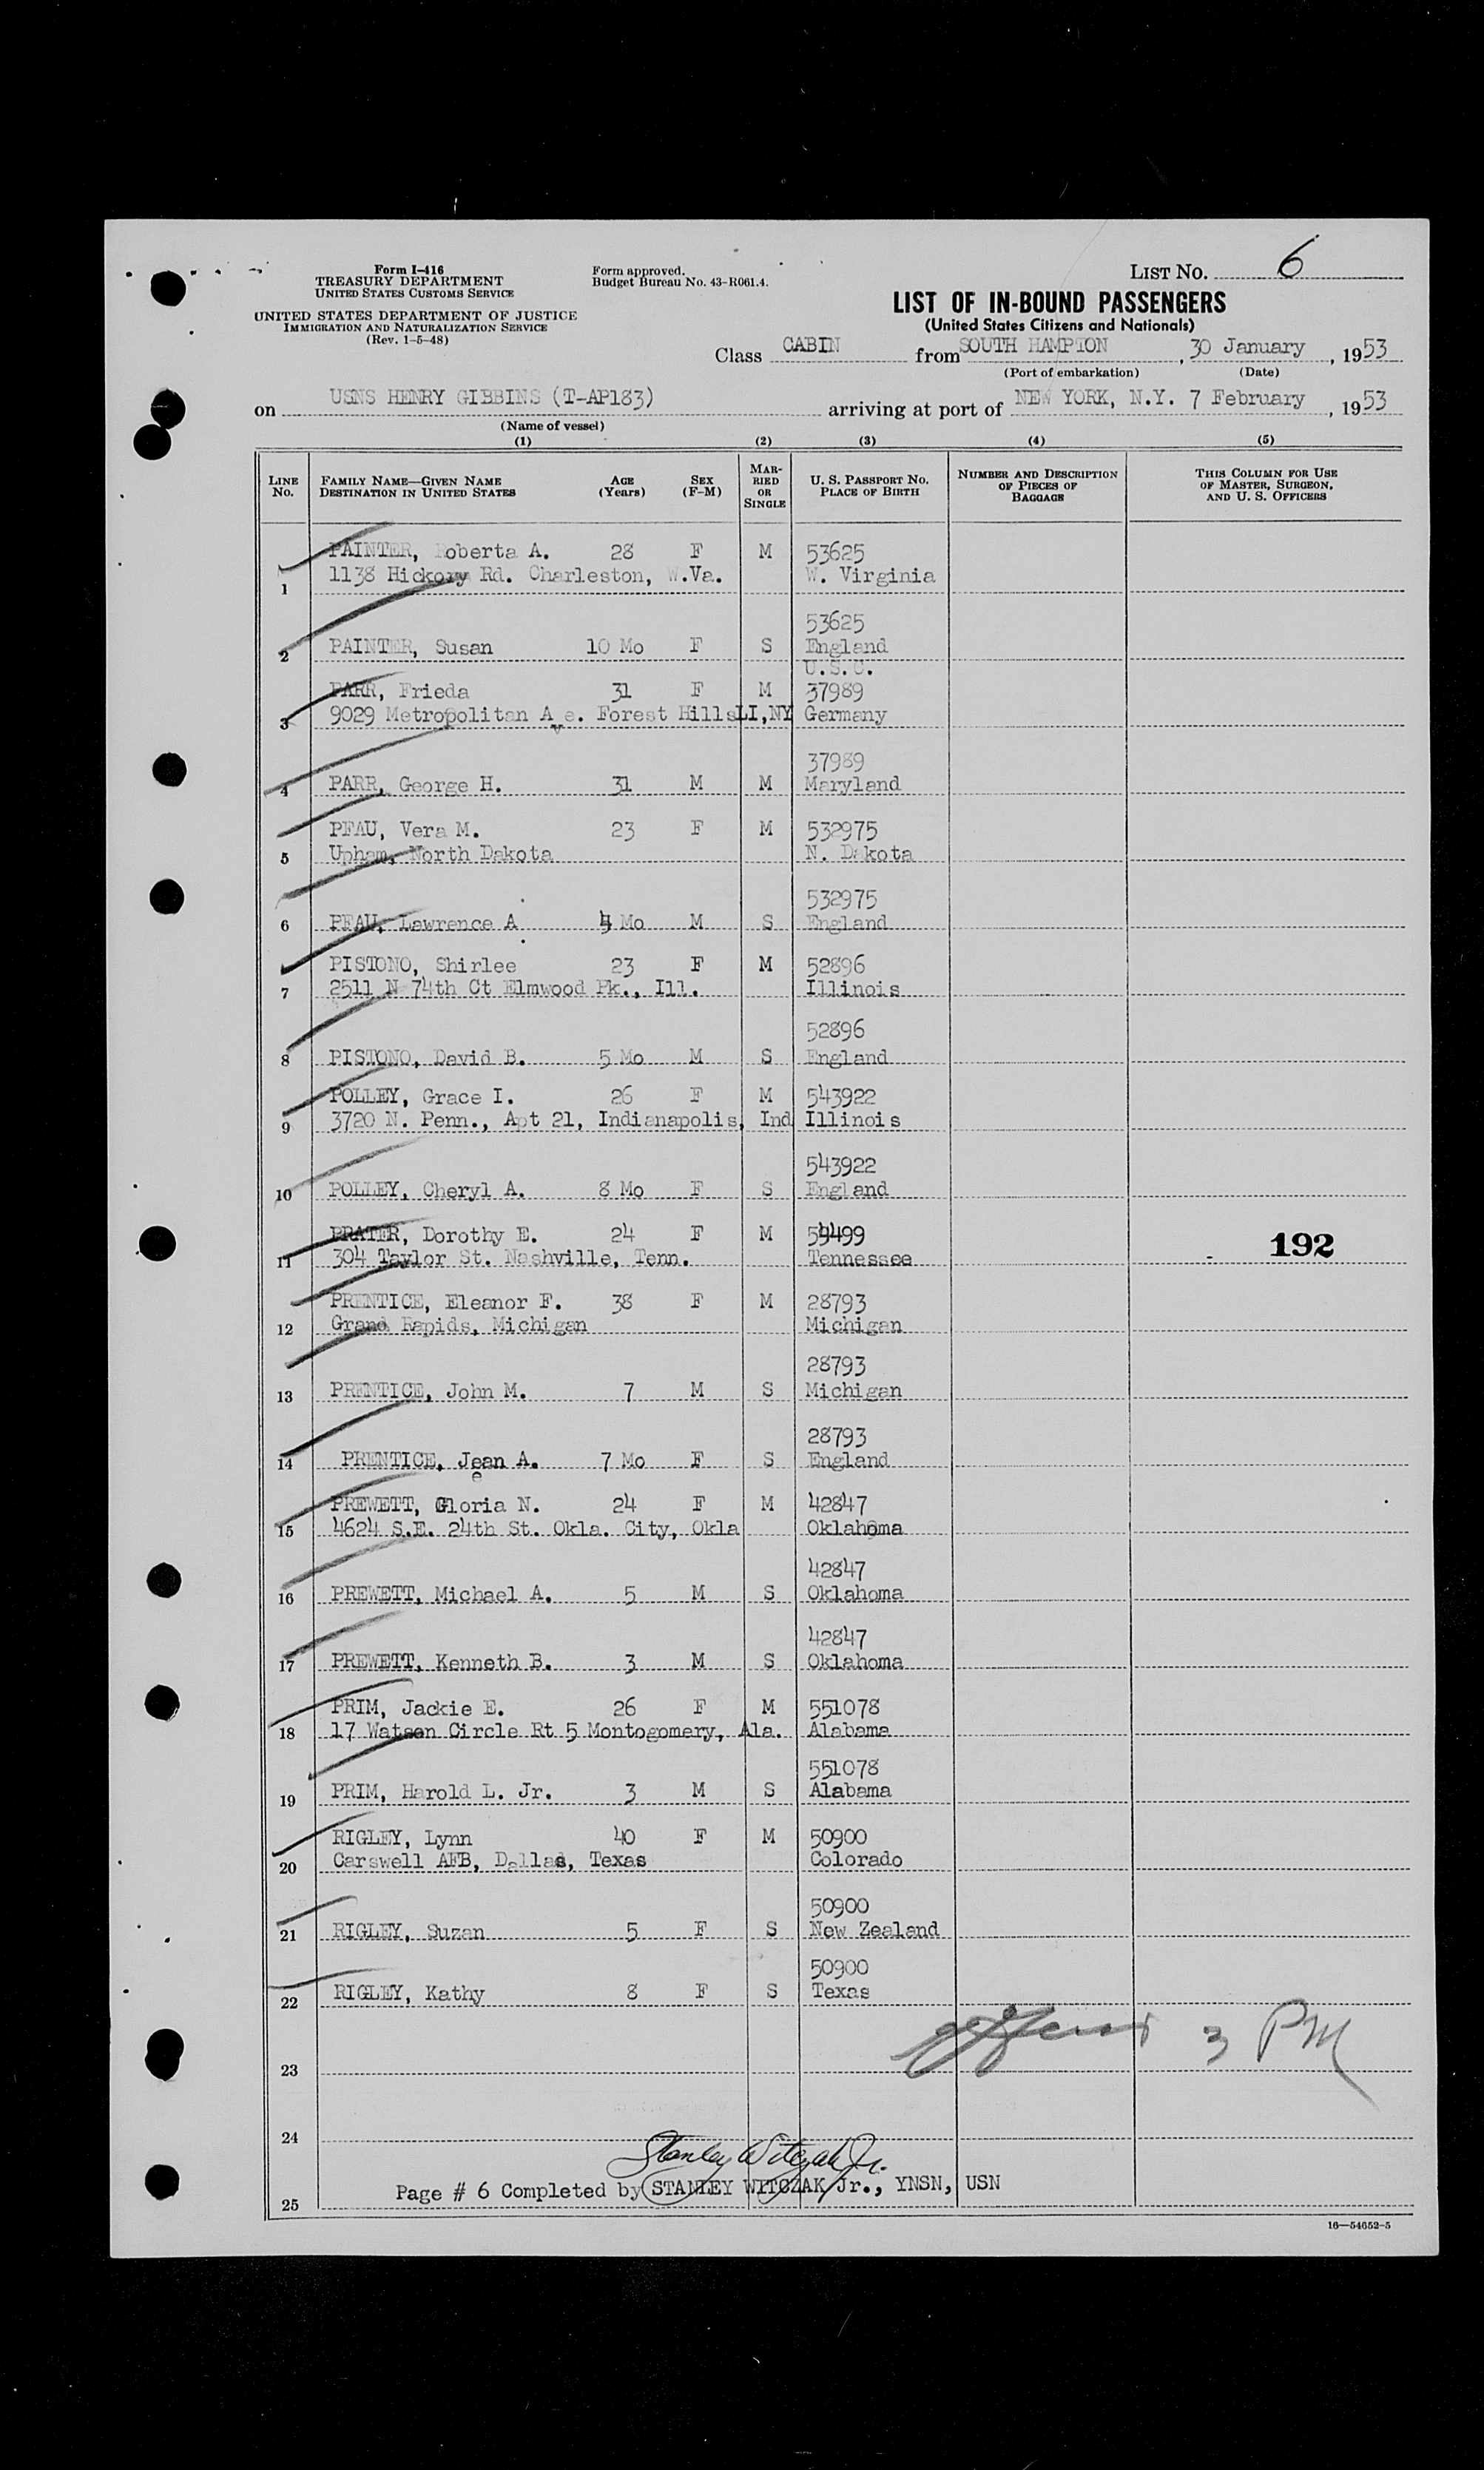 Form I-416
TREASURY DEPARTMENT
UNITED STATES CUSTOMS SERVICE
UNITED STATES DEPARTMENT OF JUSTICE
IMMIGRATION AND NATURALIZATION SERVICE
(Rev. 1-5-48)
Form approved.
Budget Bureau No. 43-R061.4.
LIST NO. 6
LIST OF IN-BOUND PASSENGERS
(United States Citizens and Nationals)
Class CABIN from SOUTH HAMPTON, 30 January, 1953
(Port of embarkation) (Date)
on USNS HENRY GIBBINS (T-AP183) arriving at port of NEW YORK, N.Y. 7 February, 1953
(Name of vessel)
(1) (2) (3) (4) (5)
LINE No. FAMILY NAME—GIVEN NAME DESTINATION IN UNITED STATES AGE (Years) SEX (F-M) MARRIED OR SINGLE U. S. PASSPORT NO. PLACE OF BIRTH NUMBER AND DESCRIPTION OF PIECES OF BAGGAGE THIS COLUMN FOR USE OF MASTER, SURGEON, AND U. S. OFFICERS
PAINTER, Roberta A. 28 F M 53625
1 1138 Hickory Rd. Charleston, W.Va. W. Virginia
53625
2 PAINTER, Susan 10 Mo F S England
U.S.C.
PARR, Frieda 31 F M 37989
3 9029 Metropolitan Ave. Forest Hills LI,NY Germany
37989
4 PARR, George H. 31 M M Maryland
PFAU, Vera M. 23 F M 532975
5 Upham, North Dakota N. Dakota
532975
6 PFAU, Lawrence A 4 Mo M S England
PISTONO, Shirlee 23 F M 52896
7 2511 N 74th Ct Elmwood Pk., Ill. Illinois
52896
8 PISTONO, David B. 5 Mo M S England
POLLEY, Grace I. 26 F M 543922
9 3720 N. Penn., Apt 21, Indianapolis, Ind Illinois
543922
10 POLLEY, Cheryl A. 8 Mo F S England
PRATER, Dorothy E. 24 F M 59499
11 304 Taylor St. Nashville, Tenn. Tennessee
192
PRENTICE, Eleanor F. 38 F M 28793
12 Grand Rapids, Michigan Michigan
28793
13 PRENTICE, John M. 7 M S Michigan
28793
14 PRENTICE, Jean A. 7 Mo F S England
e
PREWETT, Gloria N. 24 F M 42847
15 4624 S.E. 24th St. Okla. City, Okla Oklahoma
42847
16 PREWETT, Michael A. 5 M S Oklahoma
42847
17 PREWETT, Kenneth B. 3 M S Oklahoma
PRIM, Jackie E. 26 F M 551078
18 17 Watson Circle Rt 5 Montogomery, Ala. Alabama
551078
19 PRIM, Harold L. Jr. 3 M S Alabama
RIGLEY, Lynn 40 F M 50900
20 Carswell AFB, Dallas, Texas Colorado
50900
21 RIGLEY, Suzan 5 F S New Zealand
50900
22 RIGLEY, Kathy 8 F S Texas
3 PM
23
24
Stanley Witczak Jr.
Page # 6 Completed by STANLEY WITCZAK Jr., YNSN, USN
25
16—54652-5